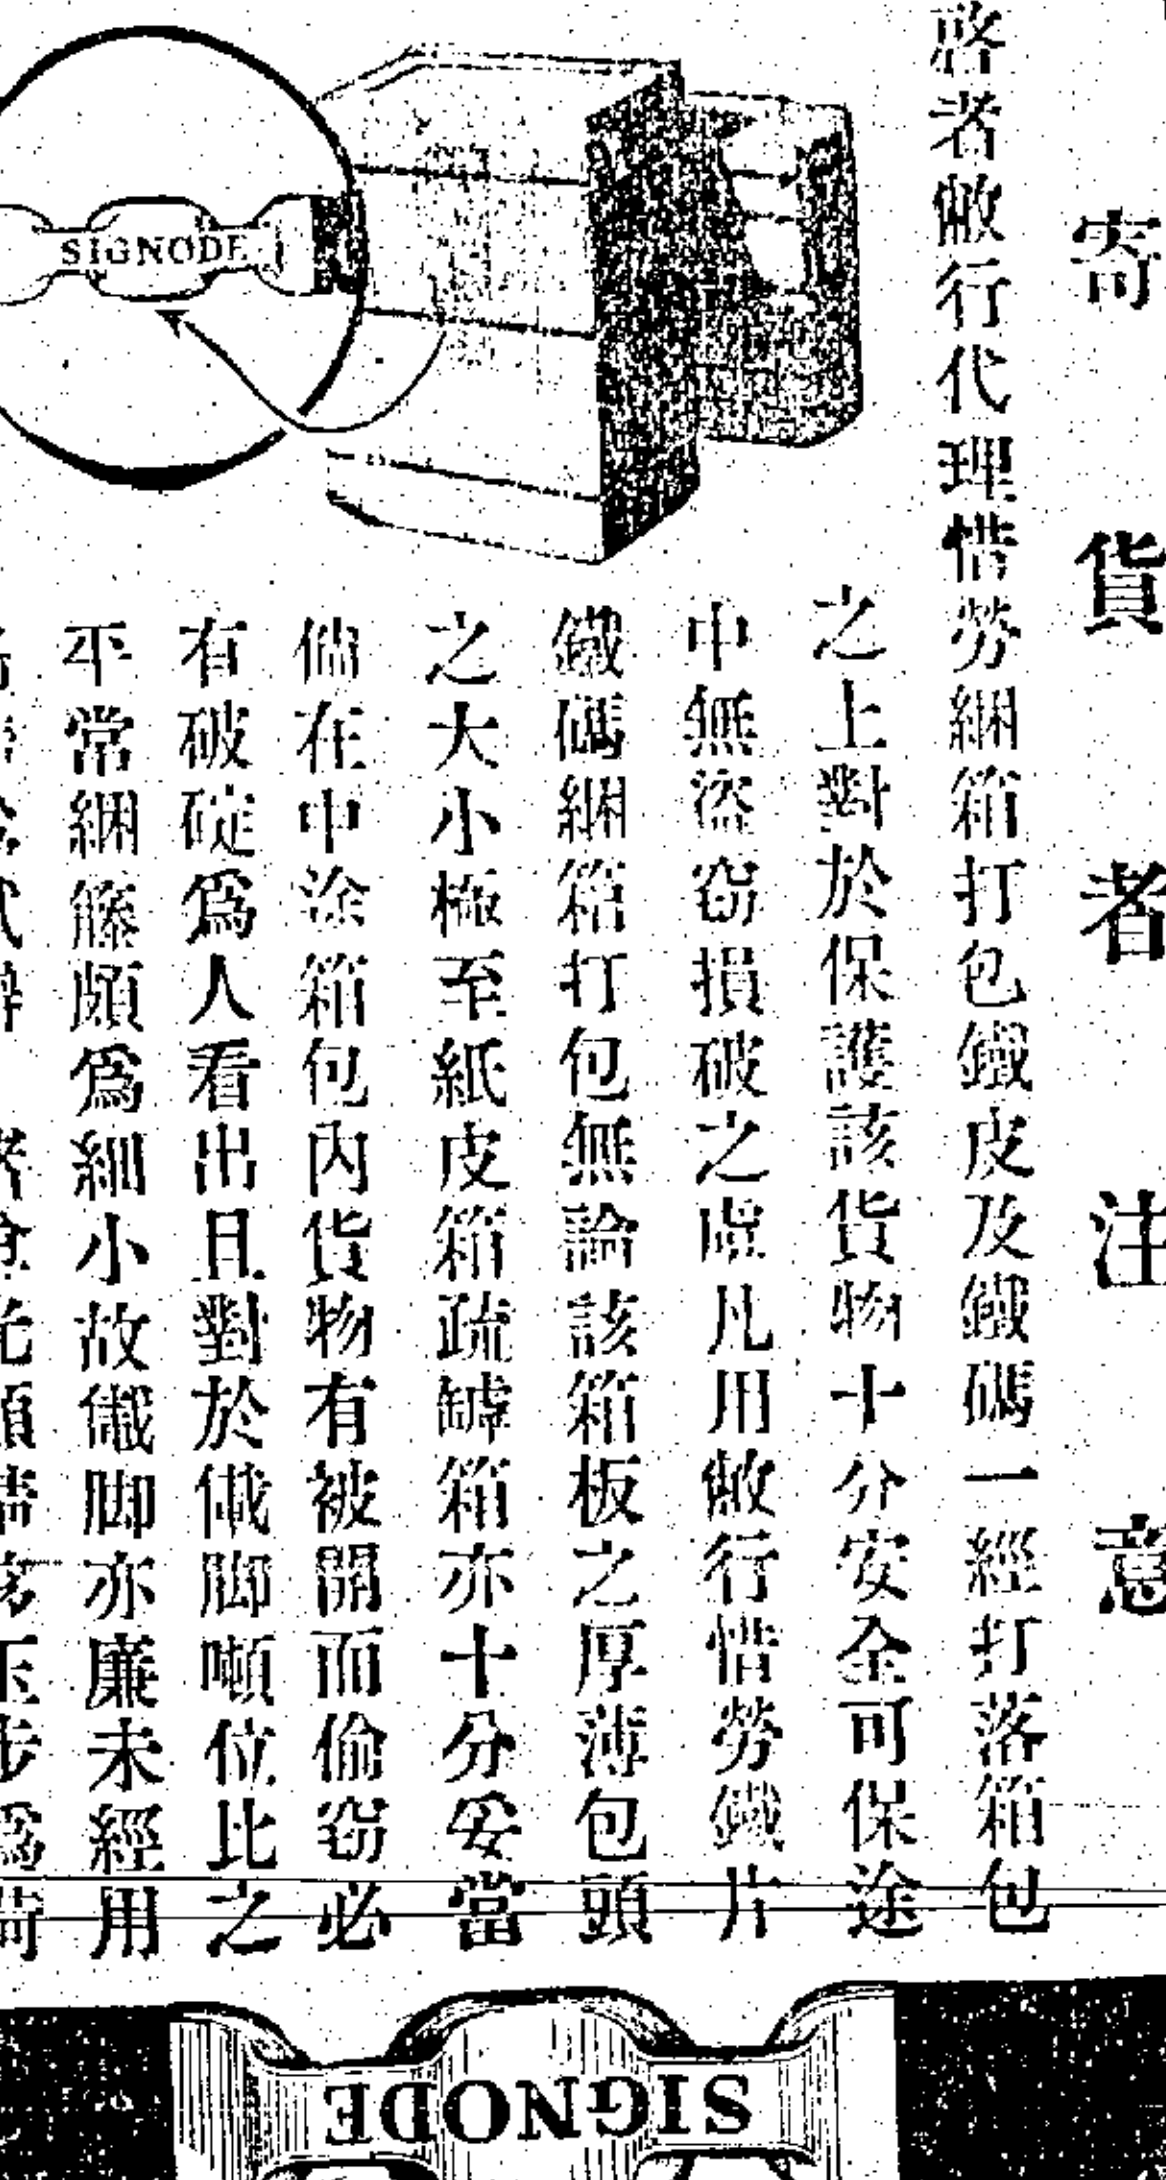 寄貨者注意
啓者敝行代理惜勞綑箱打包鐵皮及鐵碼一經打落箱包
之上對於保護該貨物十分安全可保途
中無盜窃損破之虞凡用敝行惜勞鐵片
鐵碼綑箱打包無論該箱板之厚薄包頭
之大小極至紙皮箱疏罅箱亦十分妥當
倘在中途箱包內貨物有被開而偷窃必
有破碇爲人看出且對於儎脚噸位比之
平常綑籐頗爲細小故儎脚亦廉未經用
SIGNODE
SIGNODE